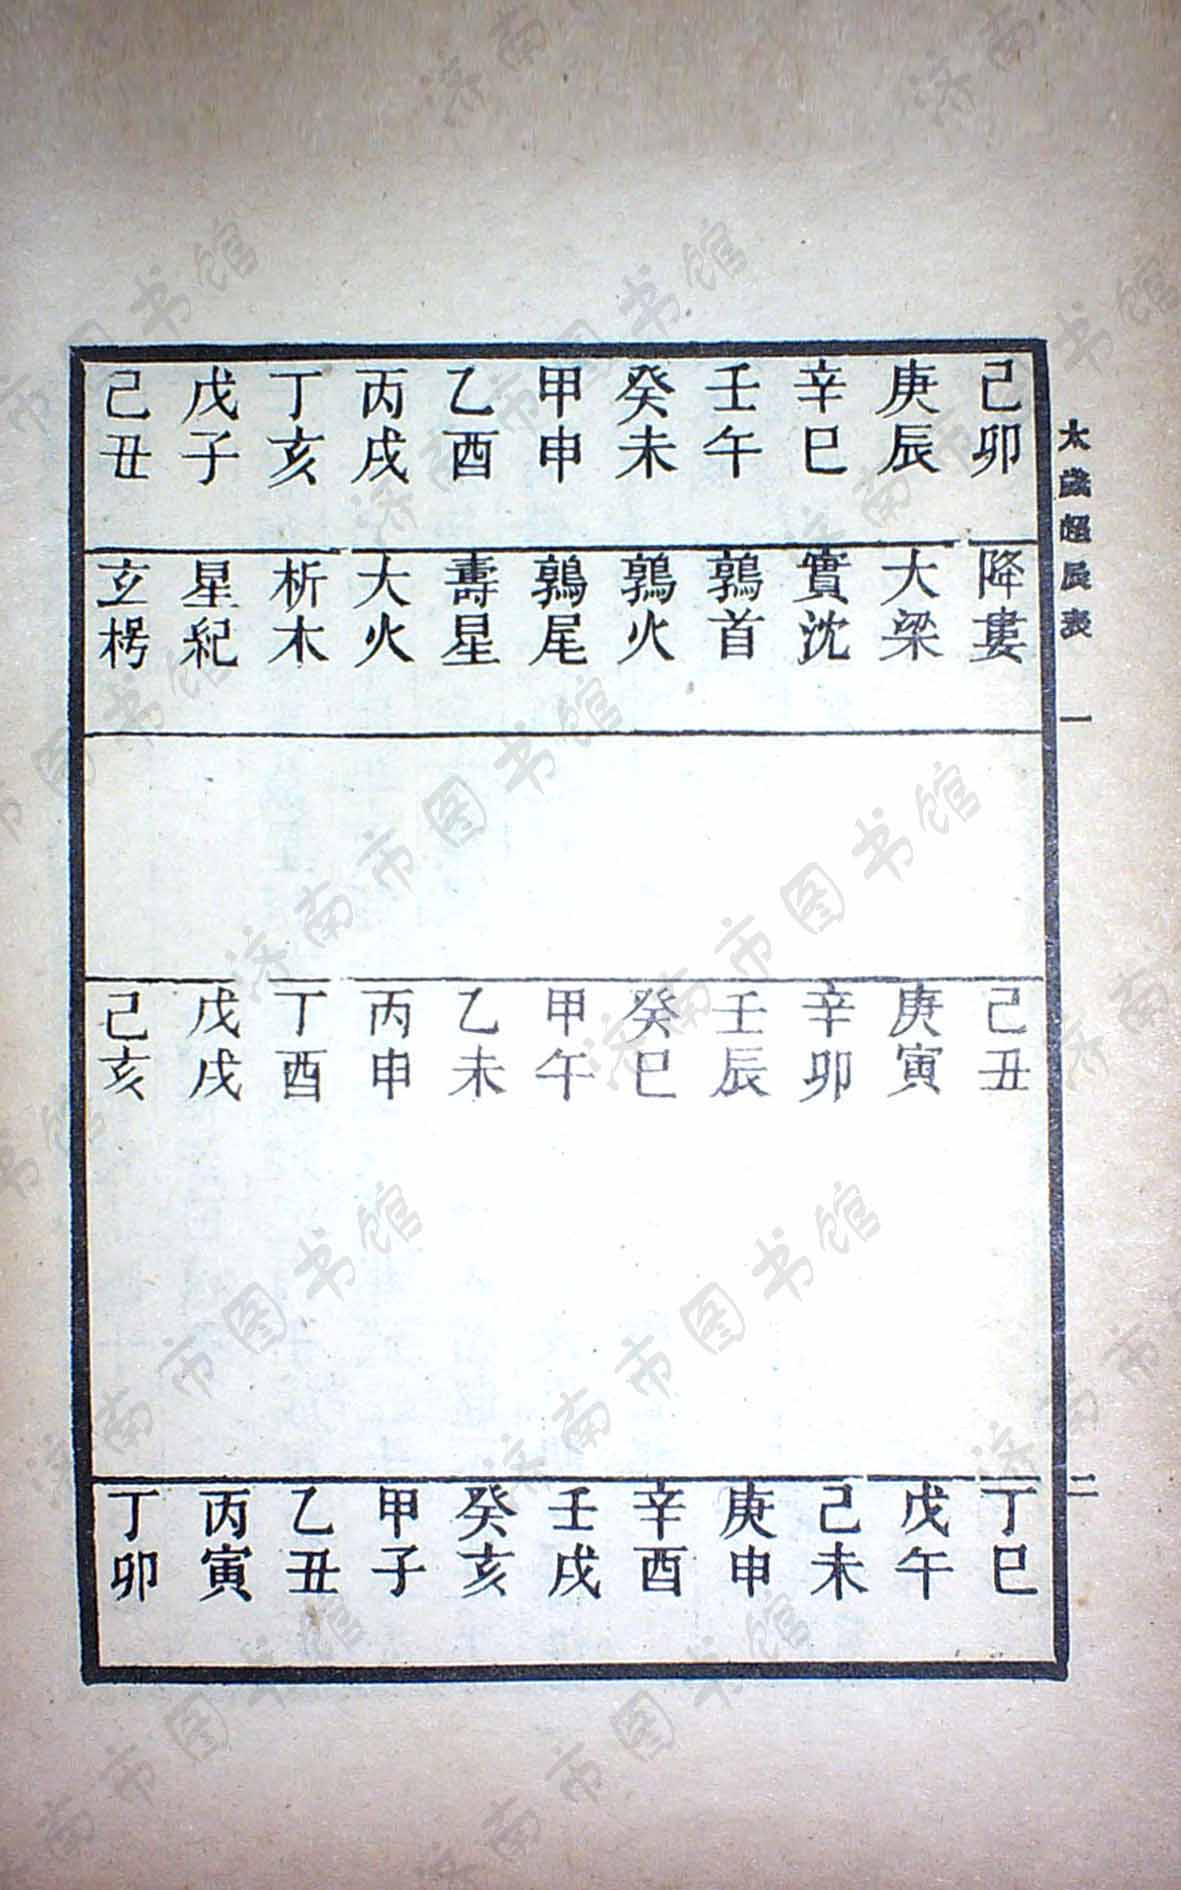 太歲超辰表 一 二
己卯 降婁 己丑 丁巳
庚辰 大梁 庚寅 戊午
辛巳 實沈 辛卯 己未
壬午 鶉首 壬辰 庚申
癸未 鶉火 癸巳 辛酉
甲申 鶉尾 甲午 壬戌
乙酉 壽星 乙未 癸亥
丙戌 大火 丙申 甲子
丁亥 析木 丁酉 乙丑
戊子 星紀 戊戌 丙寅
己丑 玄枵 己亥 丁卯
济南市图书馆